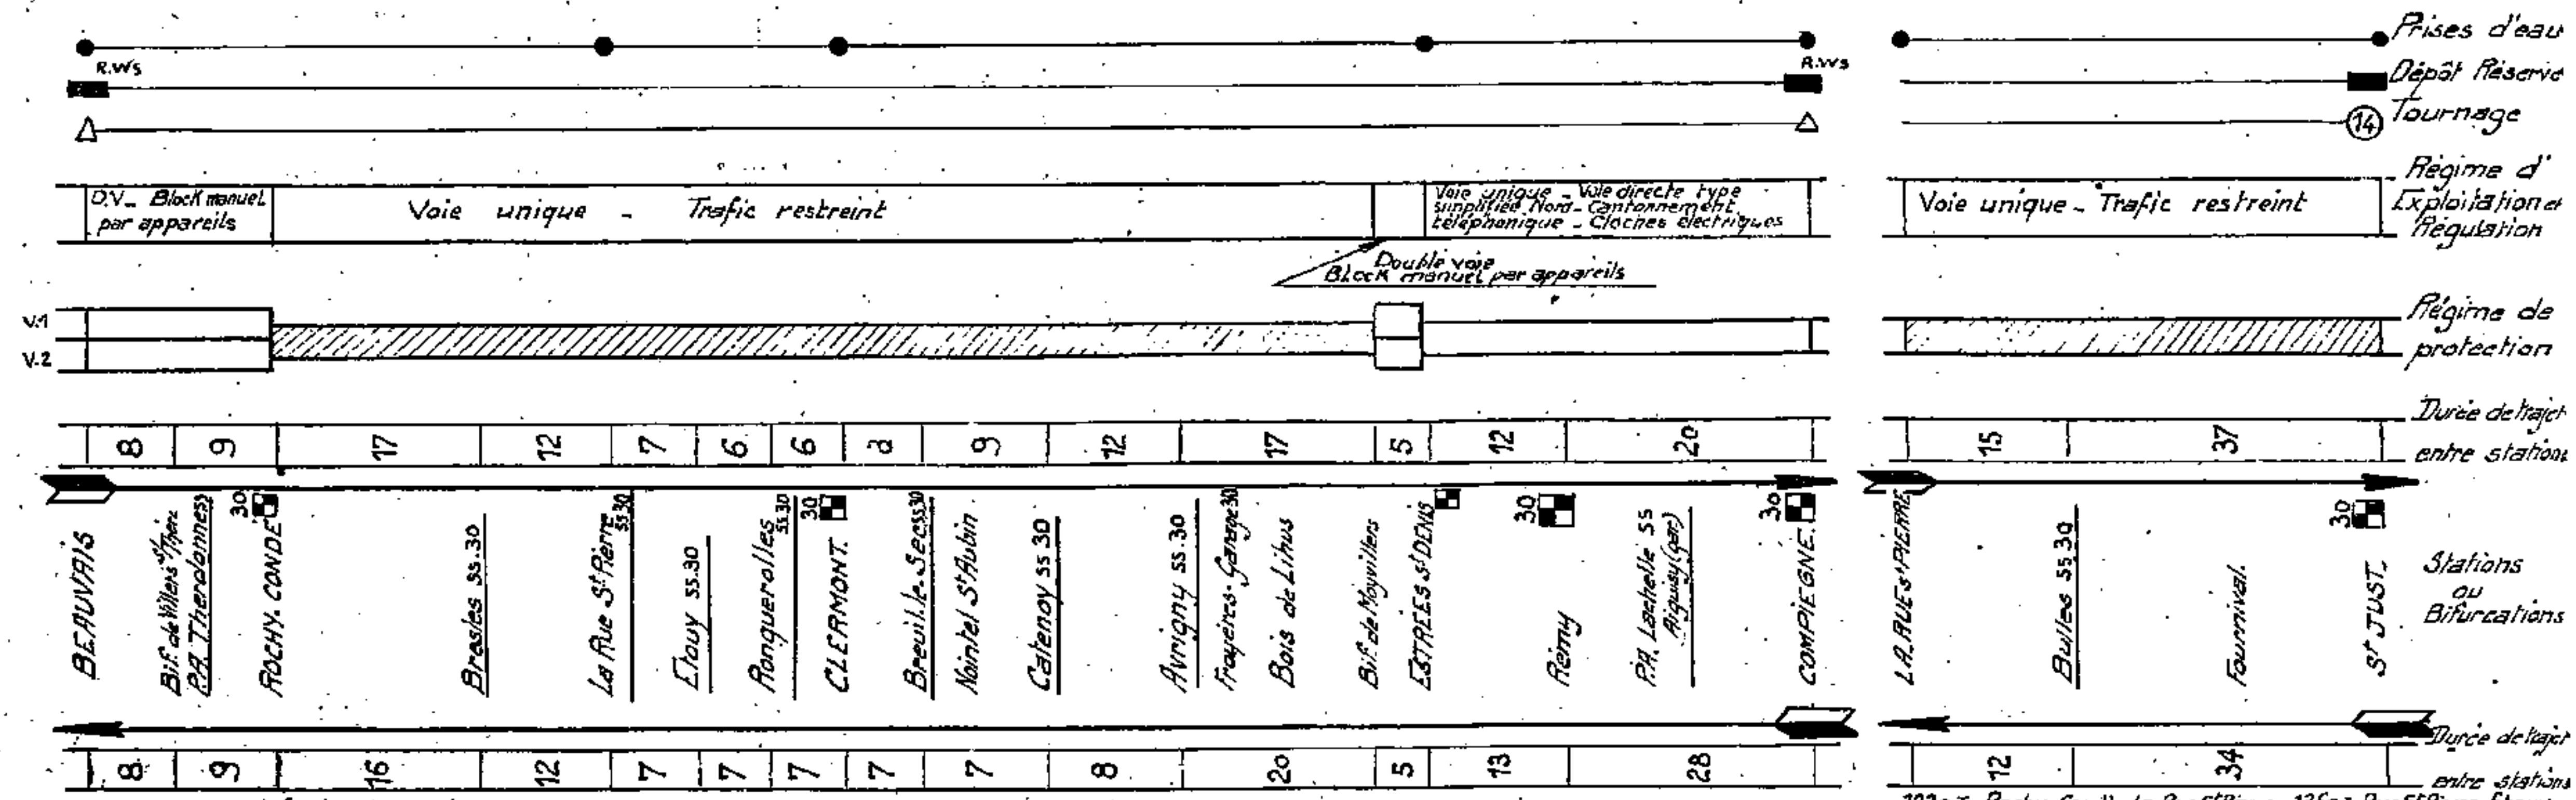 Prises d'eau
R.WS R.WS
Dépôt Réserve
Tournage
14
D.V_ Block manuel
par appareils
Voie unique _ Trafic restreint
Voie unique _ Voie directe type
simplifiée Nord_ Cantonnement
téléphonique _ Cloches électriques
Voie unique _ Trafic restreint
Régime d'
Exploitation et
Régulation
Double voie
Block manuel par appareils
V.1
V.2
Régime de
protection
Durée de trajet
entre stations
8 9 17 12 7 6 6 8 9 12 17 5 12 20 15 37
BEAUVAIS
Bif. de Villers s/Thère
P.A. Therdonne ss
30
ROCHY. CONDÉ
Bresles ss.30
La Rue St Pierre
ss 30
Etouy ss.30
Ronquerolles
ss.30
30
CLERMONT.
Breuil.le.Sec ss 30
Nointel St Aubin
Catenoy ss 30
Avrigny ss.30
Froyères-Garage 30
Bois de Lihus
Bif. de Moyvillers
ESTRÉES St DENIS
30
Rémy
P.A. Lachelle ss
Aiguisy (gar)
30
COMPIÈGNE.
LA. RUE St PIERRE
Bulles ss.30
Fournival.
30
St JUST.
Stations
ou
Bifurcations
Durée de trajet
entre stations
8 9 16 12 7 7 7 7 7 8 20 5 13 28 12 34